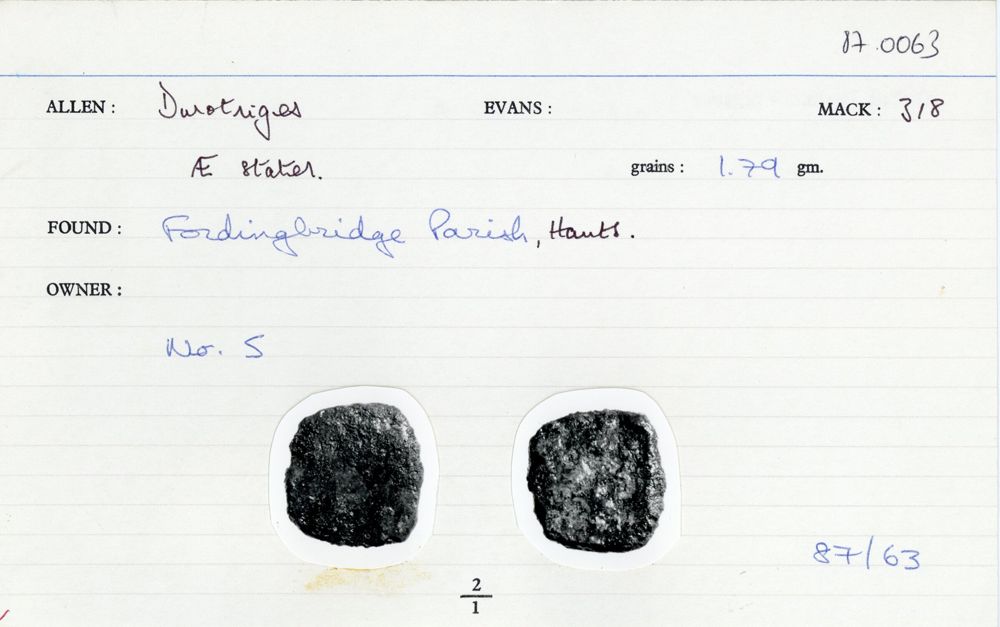 87.0063
ALLEN: Durotriges EVANS: MACK: 318
Æ stater. grains: 1.79 gm.
FOUND: Fordingbridge Parish, Hants.
OWNER:
No. 5
87/63
2
1